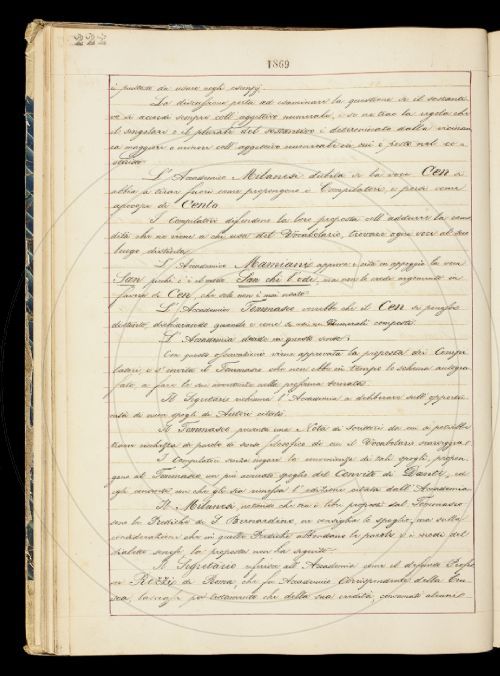 222
1869
è piuttosto da usare negli esempj.
La discussione porta ad esaminare la questione se il sostanti-
vo si accordi sempre coll' aggettivo numerale, e se ne trae la regola che
il singolare o il plurale del sostantivo è determinato dalla vicinan-
za maggiore o minore coll' aggettivo numerale cui è posto nel
L' Accademico Milanesi dubita se la voce Cen si
abbia a tirar fuori come propongono i Compilatori, e porla come
apocope di Cento.
I Compilatori difendono la loro proposta coll' addurre la como-
dità che ne viene a chi usa del Vocabolario, trovare ogni voce al suo
luogo distinta.
L' Accademico Mamiani approva e cita in appoggio la voce
San perchè è il motto San chi l' ode, ma non lo crede argomento in
favore di Cen, che solo non è mai usato.
L' Accademico Tommaseo vorrebbe che il Cen si ponesse
distinto, dichiarando quando e come si usi ne' Numerali composti.
L' Accademia decide in questo senso;
Con queste osservazioni viene approvata la proposta dei Compi-
latori e s' invita il Tommaseo che non ebbe in tempo lo schema autogra-
fato, a fare le sue avvertenze nella prossima tornata.
Il Segretario richiama l' Accademia a deliberare sull' opportu-
nità di nuovi spogli di Autori citati.
Il Tommaseo presenta una Nota di Scrittori da cui si potrebbe
trarre ricchezza di parole di senso filosofico di cui il Vocabolario scarseggia.
I Compilatori senza negare la convenienza di tali spogli, propon-
gono al Tommaseo un più accurato spoglio del Convito di Dante, ed
egli consente purchè gli sia rimessa l' edizione citata dall' Accademia.
Il Milanesi, notando che tra i libri proposti dal Tommaseo
sono le Prediche di S. Bernardino, ne consiglia lo spoglio; ma sulla
considerazione che in quelle Prediche abbondano le parole e i modi del
dialetto senese, la proposta non ha seguito.
Il Segretario riferisce all' Accademia come il defunto Profes-
sor Rezzi di Roma, che fu Accademico Corrispondente della Cru-
sca, lasciasse per testamento che della sua eredità, consumati alcuni